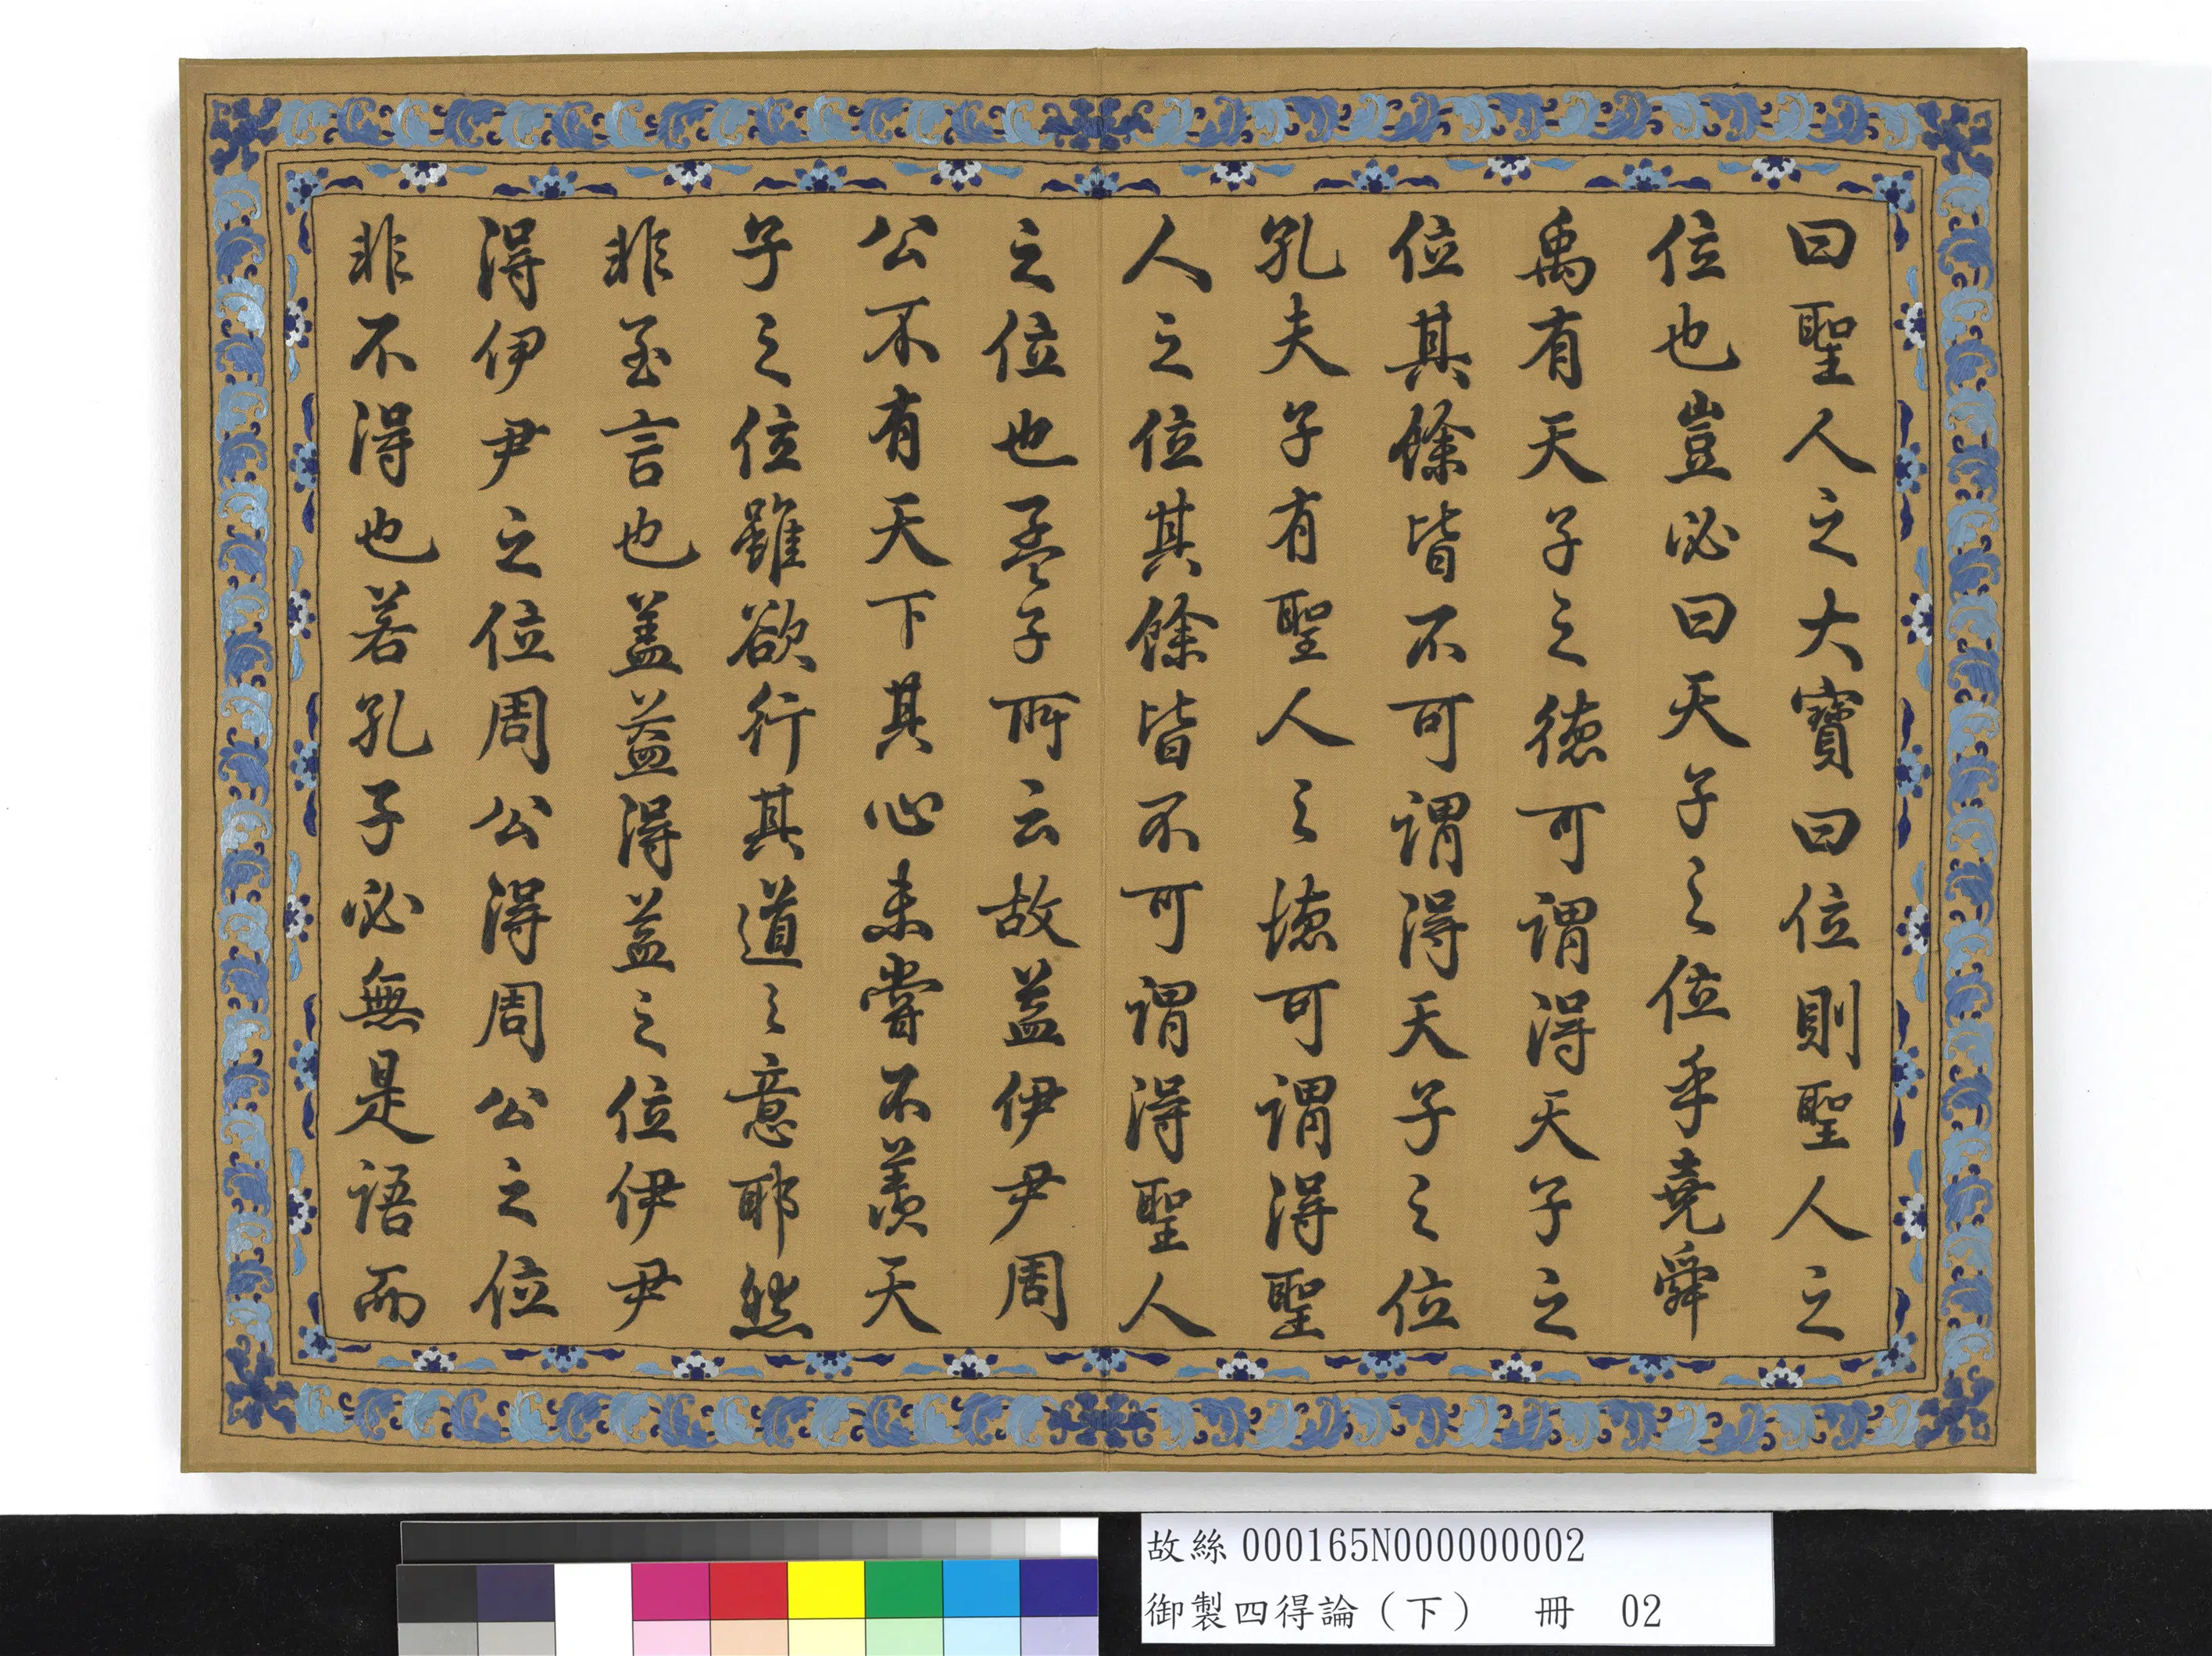 曰聖人之大寶曰位則聖人之
位也豈必曰天子之位乎堯舜
禹有天子之德可謂得天子之
位其餘皆不可謂得天子之位
孔夫子有聖人之德可謂得聖
人之位其餘皆不可謂得聖人
之位也孟子所云故益伊尹周
公不有天下其心未嘗不羨天
子之位雖欲行其道之意耶然
非至言也盖益得益之位伊尹
得伊尹之位周公得周公之位
非不得也若孔子必無是語而
故絲000165N000000002
御製四得論（下） 冊 02